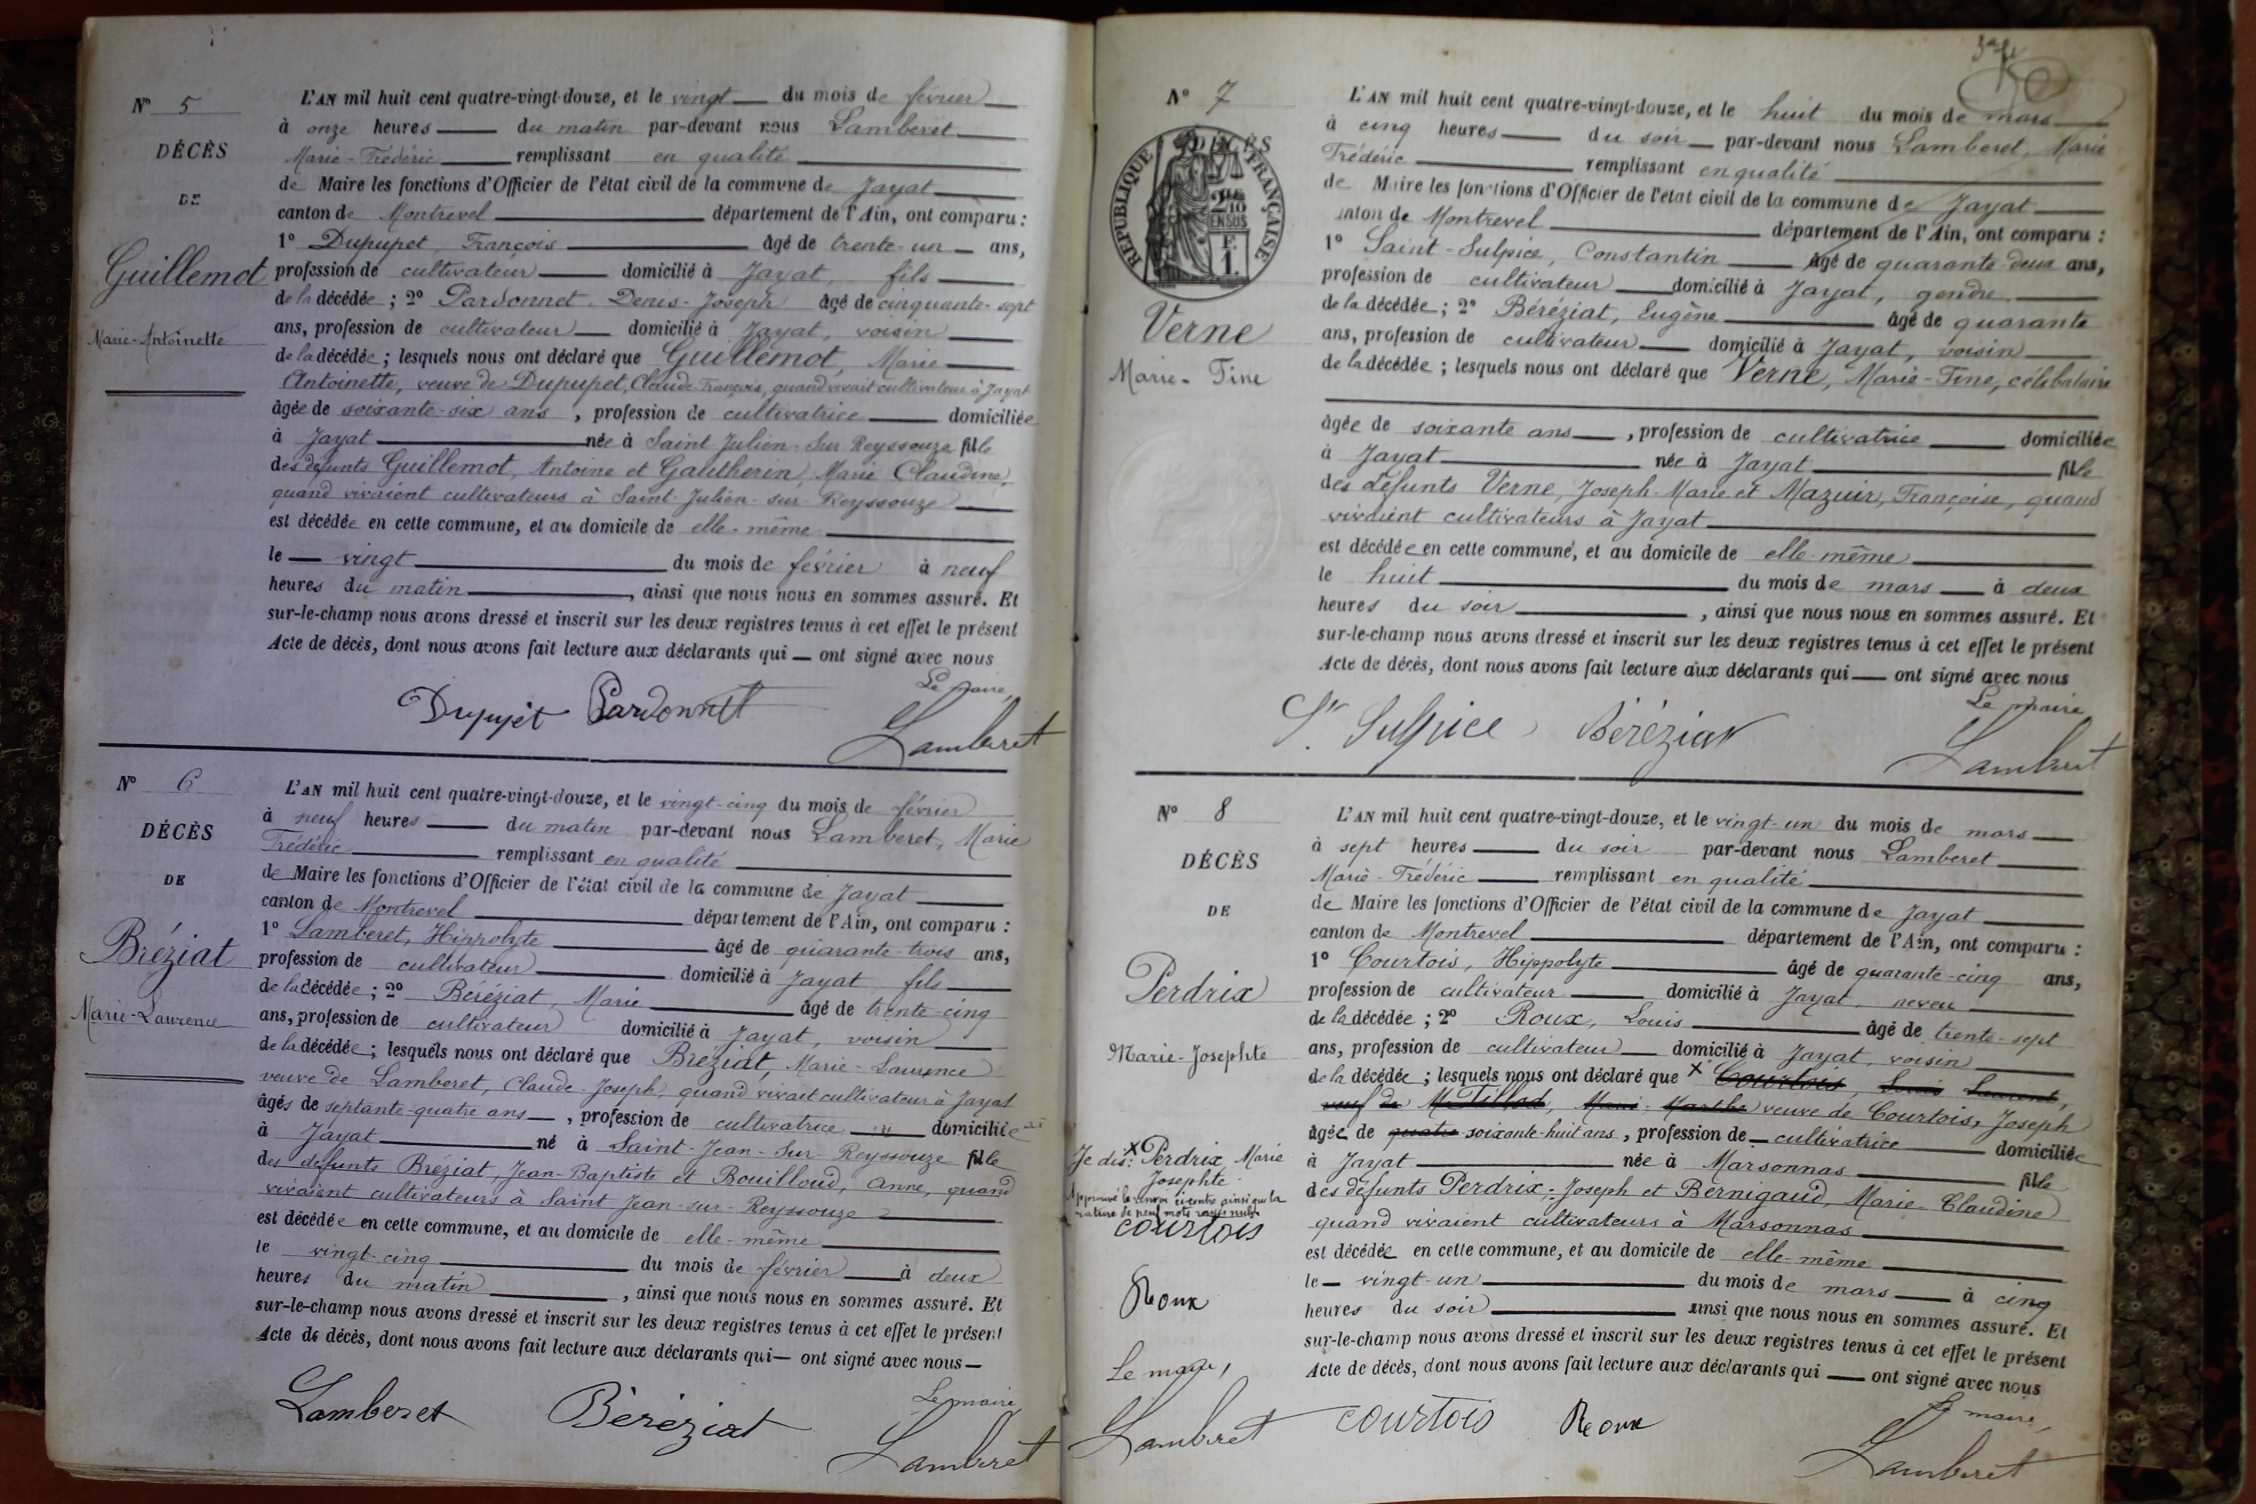 N° 5
DÉCÈS
DE
Guillemot
Marie-Antoinette
L'AN mil huit cent quatre-vingt-douze, et le vingt du mois de février
à onze heures du matin par-devant nous Lamberet
Marie-Frédéric remplissant en qualité
de Maire les fonctions d'Officier de l'état civil de la commune de Jayat
canton de Montrevel département de l'Ain, ont comparu :
1° Dupupet, François âgé de trente-un ans,
profession de cultivateur domicilié à Jayat, fils
de la décédée ; 2° Pardonnet, Denis-Joseph âgé de cinquante-sept
ans, profession de cultivateur domicilié à Jayat, voisin
de la décédée ; lesquels nous ont déclaré que Guillemot, Marie
Antoinette, veuve de Dupupet, Claude François, quand vivait cultivateur à Jayat
âgée de soixante-six ans, profession de cultivatrice domiciliée
à Jayat née à Saint Julien-sur Reyssouze fille
des défunts Guillemot, Antoine et Galtherin, Marie Claudine,
quand vivaient cultivateurs à Saint-Julien-sur-Reyssouze
est décédée en cette commune, et au domicile de elle-même
le vingt du mois de février à neuf
heures du matin, ainsi que nous nous en sommes assuré. Et
sur-le-champ nous avons dressé et inscrit sur les deux registres tenus à cet effet le présent
Acte de décès, dont nous avons fait lecture aux déclarants qui ont signé avec nous
Le maire,
Dupupet Pardonnet
Lamberet
N° 6
DÉCÈS
DE
Bréziat
Marie-Laurence
L'AN mil huit cent quatre-vingt-douze, et le vingt-cinq du mois de février
à neuf heures du matin par-devant nous Lamberet, Marie
Frédéric remplissant en qualité
de Maire les fonctions d'Officier de l'état civil de la commune de Jayat
canton de Montrevel département de l'Ain, ont comparu :
1° Lamberet, Hippolyte âgé de quarante-trois ans,
profession de cultivateur domicilié à Jayat fils
de la décédée ; 2° Béréziat, Marie âgé de trente-cinq
ans, profession de cultivateur domicilié à Jayat, voisin
de la décédée ; lesquels nous ont déclaré que Bréziat, Marie-Laurence
veuve de Lamberet, Claude-Joseph, quand vivait cultivateur à Jayat
âgés de septante-quatre ans, profession de cultivatrice domiciliée
à Jayat né à Saint-Jean-Sur-Reyssouze fille
des défunts Bréziat, Jean-Baptiste et Rouilloud, Anne, quand
vivaient cultivateurs à Saint Jean-sur-Reyssouze
est décédée en cette commune, et au domicile de elle-même
le vingt-cinq du mois de février à deux
heures du matin, ainsi que nous nous en sommes assuré. Et
sur-le-champ nous avons dressé et inscrit sur les deux registres tenus à cet effet le présent
Acte de décès, dont nous avons fait lecture aux déclarants qui ont signé avec nous
Le maire
Lamberet Béréziat
Lamberet
N° 7
DÉCÈS
RÉPUBLIQUE FRANÇAISE
2/10 EN SUS
F.
1.
Verne
Marie-Fine
L'AN mil huit cent quatre-vingt-douze, et le huit du mois de mars
à cinq heures du soir par-devant nous Lamberet, Marie
Frédéric remplissant en qualité
de Maire les fonctions d'Officier de l'état civil de la commune de Jayat
canton de Montrevel département de l'Ain, ont comparu :
1° Saint-Sulpice, Constantin âgé de quarante-deux ans,
profession de cultivateur domicilié à Jayat, gendre
de la décédée ; 2° Béréziat, Eugène âgé de quarante
ans, profession de cultivateur domicilié à Jayat, voisin
de la décédée ; lesquels nous ont déclaré que Verne, Marie-Fine, célibataire
âgée de soixante ans, profession de cultivatrice domiciliée
à Jayat née à Jayat fille
des défunts Verne, Joseph-Marie et Mazuir, Françoise, quand
vivaient cultivateurs à Jayat
est décédée en cette commune, et au domicile de elle-même
le huit du mois de mars à deux
heures du soir, ainsi que nous nous en sommes assuré. Et
sur-le-champ nous avons dressé et inscrit sur les deux registres tenus à cet effet le présent
Acte de décès, dont nous avons fait lecture aux déclarants qui ont signé avec nous
Le maire
St Sulpice Béréziat
Lamberet
N° 8
DÉCÈS
DE
Perdrix
Marie-Josephte
L'AN mil huit cent quatre-vingt-douze, et le vingt-un du mois de mars
à sept heures du soir par-devant nous Lamberet
Marie-Frédéric remplissant en qualité
de Maire les fonctions d'Officier de l'état civil de la commune de Jayat
canton de Montrevel département de l'Ain, ont comparu :
1° Courtois, Hippolyte âgé de quarante-cinq ans,
profession de cultivateur domicilié à Jayat neveu
de la décédée ; 2° Roux, Louis âgé de trente-sept
ans, profession de cultivateur domicilié à Jayat, voisin
de la décédée ; lesquels nous ont déclaré que x Courtois, Laurent,
veuf de Marthe veuve de Courtois, Joseph
âgée de quatre soixante-huit ans, profession de cultivatrice domiciliée
à Jayat née à Marsonnas fille
des défunts Perdrix, Joseph et Bernigaud, Marie-Claudine
quand vivaient cultivateurs à Marsonnas
est décédée en cette commune, et au domicile de elle-même
le vingt-un du mois de mars à cinq
heures du soir ainsi que nous nous en sommes assuré. Et
sur-le-champ nous avons dressé et inscrit sur les deux registres tenus à cet effet le présent
Acte de décès, dont nous avons fait lecture aux déclarants qui ont signé avec nous
Le maire,
Courtois Roux
Lamberet
Je dis : x Perdrix, Marie
Josephte
Approuvé le renvoi ci-contre ainsi que la
rature de neuf mots rayés nuls
Courtois
Roux
Le maire,
Lamberet